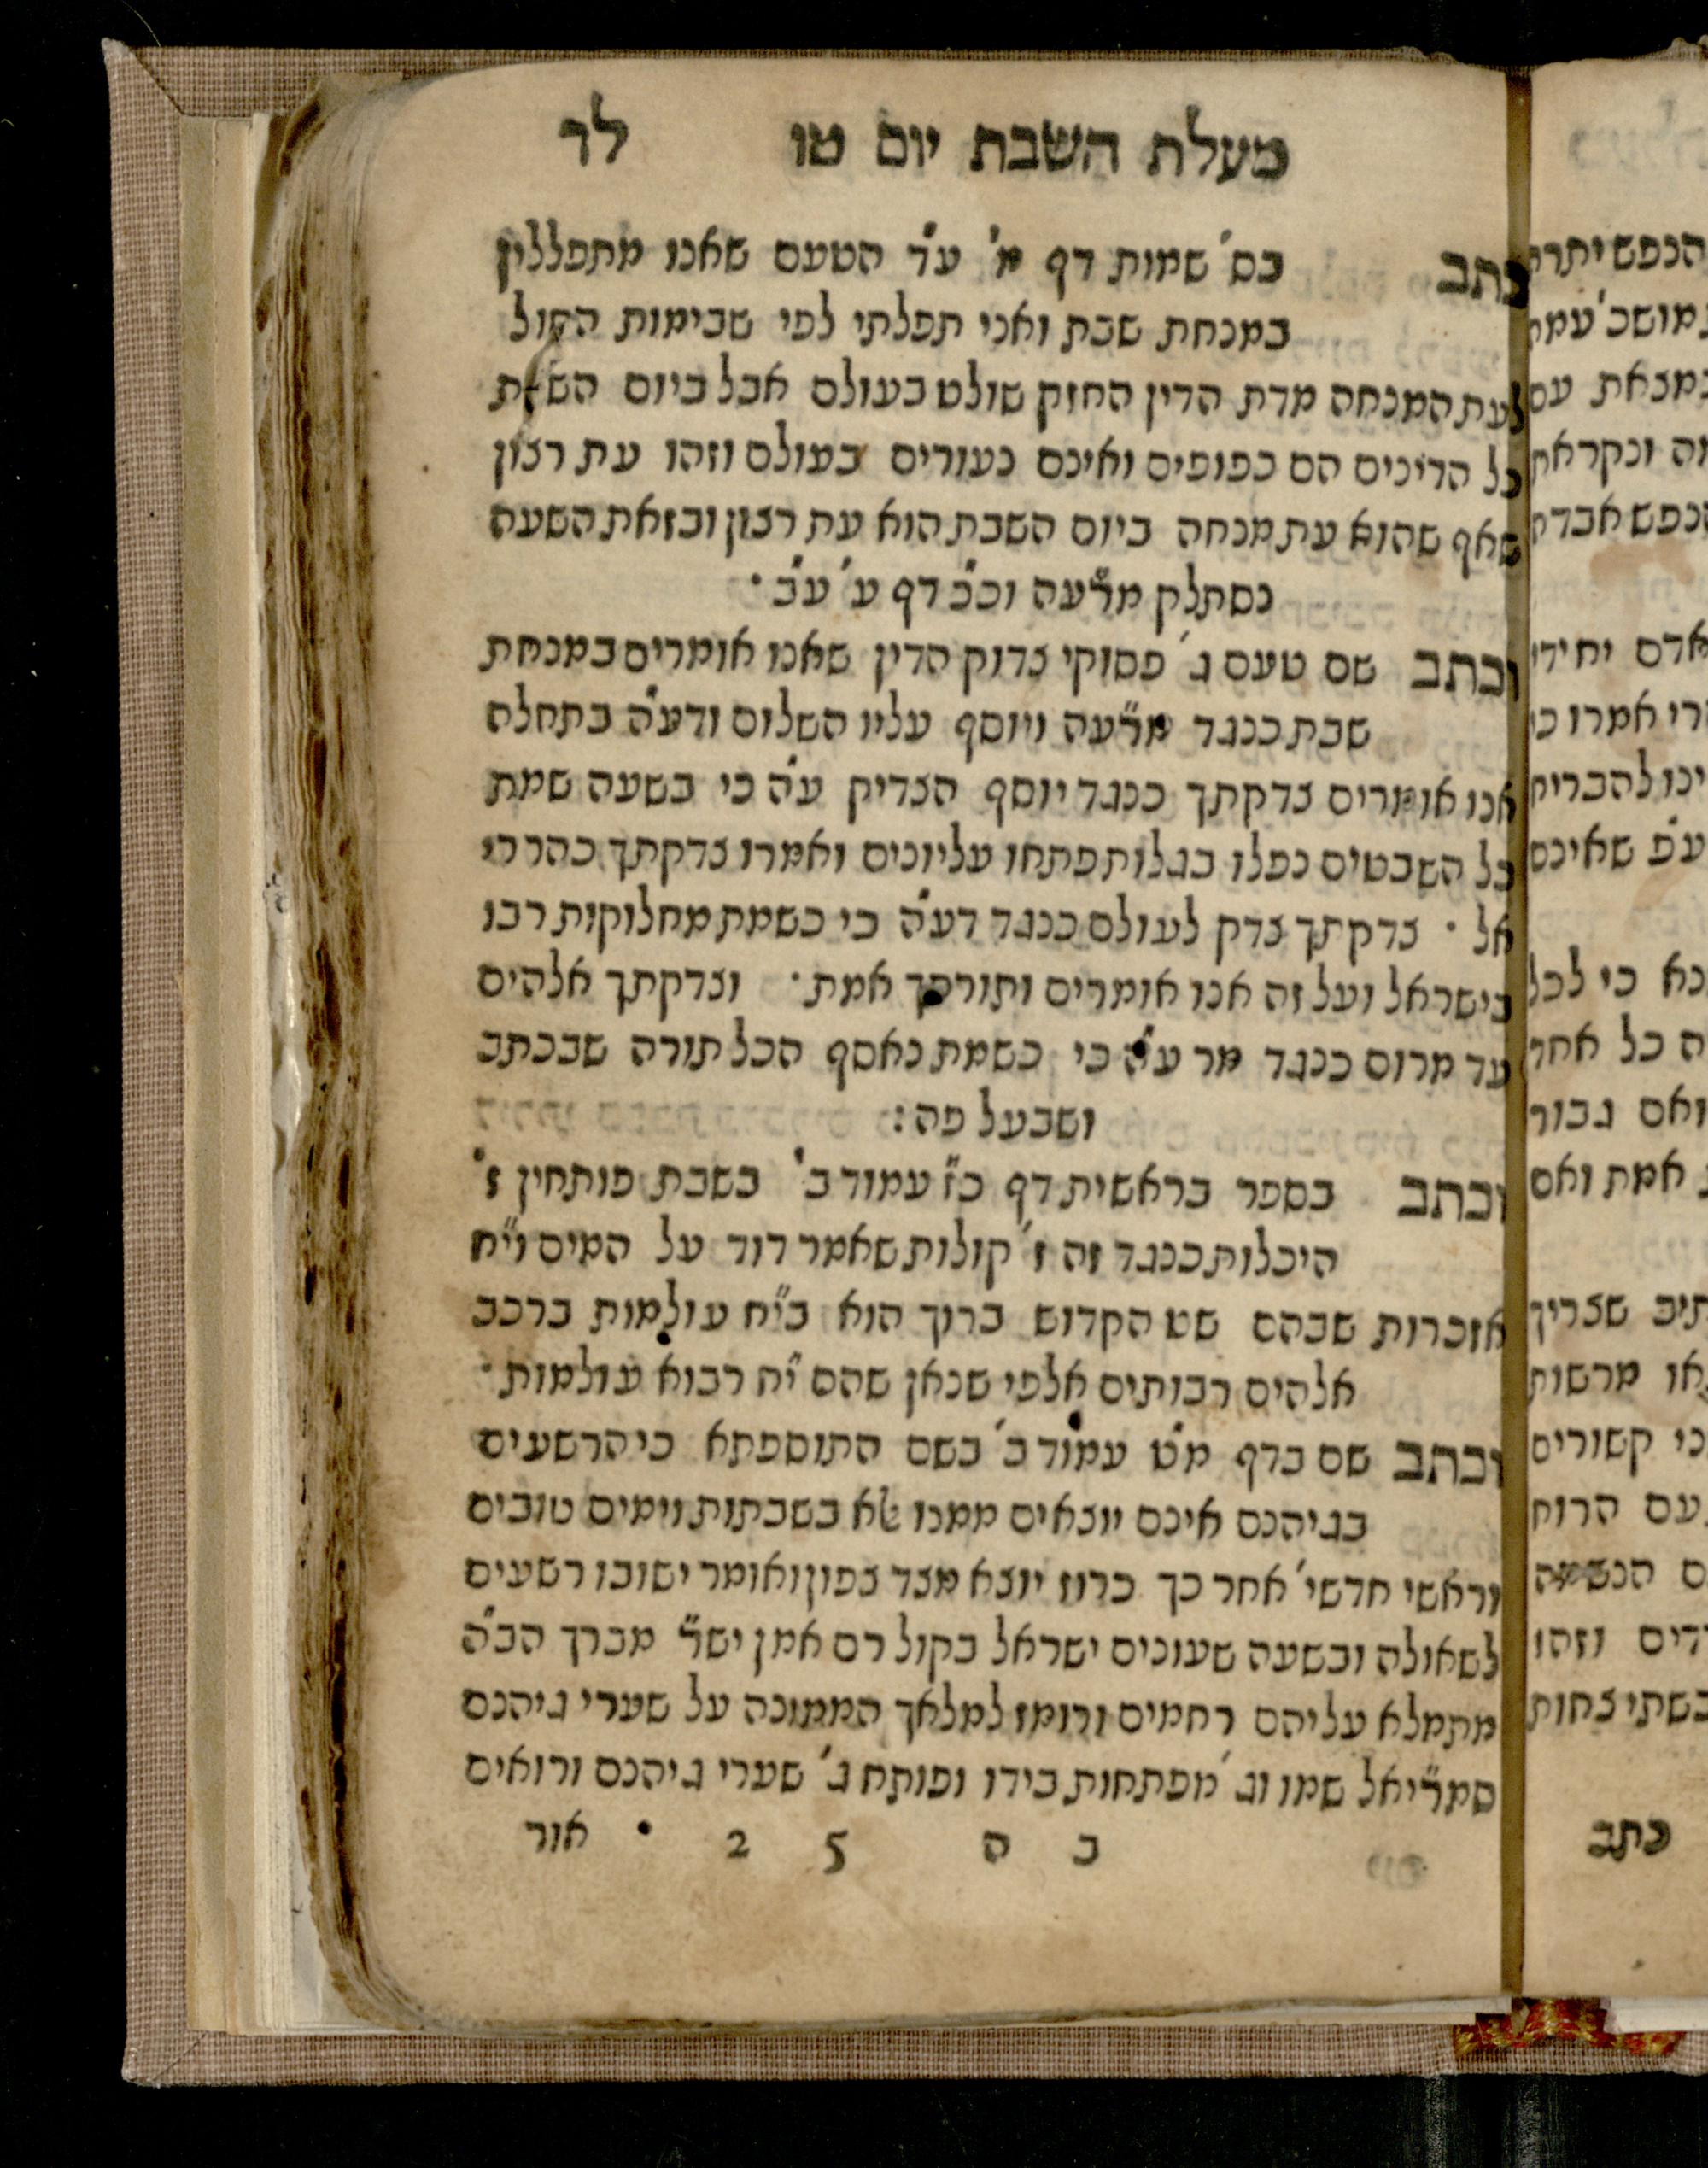 מעלת השבת יום טו לד
כתב בס' שמות דף מ' ע"ד הטעם שאנו מתפללין
במנחת שבת ואני תפלתי לפי שבימות החול
לעת המנחה מדת הדין החזק שולט בעולם אבל ביום השבת
כל הדינים הם כפופים ואינם נעורים בעולם וזהו עת רצון
שאף שהוא עת מנחה ביום השבת הוא עת רצון ובזאת השעה
נסתלק מר"עה וכ"כ דף ע' ע"ב ·
וכתב שם טעם ג' פסוקי צדוק הדין שאנו אומרים במנחת
שבת כנגד מר"עה ויוסף עליו השלום ודע"ה בתחלה
אנו אומרים צדקתך כנגד יוסף הצדיק ע"ה כי בשעה שמת
כל השבטים נפלו בגלות פתחו עליונים ואמרו צדקתך כהררי
אל · צדקתך צדק לעולם כנגד דע"ה כי כשמת מחלוקות רבו
בישראל ועל זה אנו אומרים ותורתך אמת · וצדקתך אלהים
עד מרום כנגד מר ע"ה כי כשמת נאסף הכל תורה שבכתב
ושבעל פה :
וכתב בספר בראשית דף כ"ז עמוד ב' בשבת פותחין ז'
היכלות כנגד זה ז' קולות שאמר דוד על המים וי"ח
אזכרות שבהם שט הקדוש ברוך הוא בי"ח עולמות ברכב
אלהים רבותים אלפי שנאן שהם י"ח רבוא עולמות ·
וכתב שם בדף מ"ט עמוד ב' בשם התוספתא כי הרשעים
בגיהנם אינם יוצאים ממנו אלא בשבתות וימים טובים
וראשי חדשי' אחר כך כרוז יוצא מצד צפון ואומר ישובו רשעים
לשאולה ובשעה שעונים ישראל בקול רם אמן ישר"י מברך הב"ה
מתמלא עליהם רחמים ורומז למלאך הממונה על שערי גיהנם
סמרי"אל שמו וג' מפתחות בידו ופותח ג' שערי גיהנם ורואים
כ ה 5 2 · אור
הנפש יתרה
מושב' עמה
במנאת עם
זה ונקראת
הנפש אבדה
אדם יחידי
הרי אמרו כי
ינו להבריח
ע"פ שאינם
נא כי לכל
ה כל אחד
ואם גבור
אמת ואם
תיב שצריך
או מרשות
כי קשורים
עם הרוח
ם הנשמה
דים וזהו
בשתי צחות
כתב